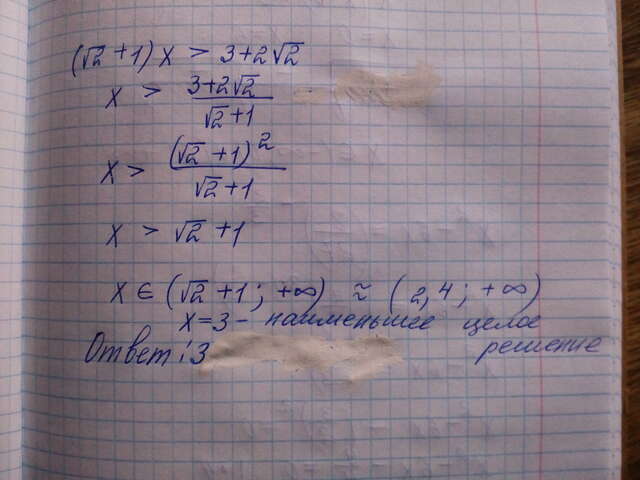 (√2 + 1) x > 3 + 2√2
x > (3+2√2)/(√2+1)
x > (√2 + 1)²/(√2+1)
x > √2 + 1
x ∈ (√2 + 1; +∞) ≈ (2,4; +∞)
x = 3 - наименьшее целое
решение
Ответ: 3